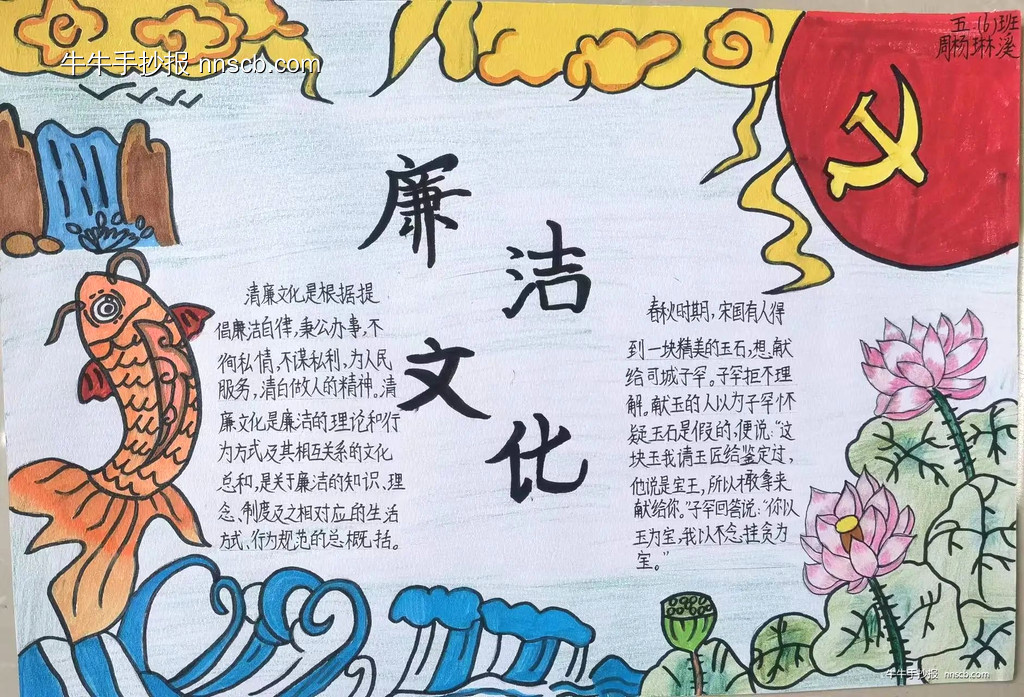 牛牛手抄报 nnscb.com
五(6)班
周杨琳溪
廉
洁
文
化
清廉文化是根据提
倡廉洁自律,秉公办事,不
徇私情,不谋私利,为人民
服务,清白做人的精神。清
廉文化是廉洁的理论和行
为方式及其相互关系的文化
总和,是关于廉洁的知识、理
念、制度及之相对应的生活
方式、行为规范的总概括。
春秋时期,宋国有人得
到一块精美的玉石,想献
给司城子罕。子罕拒不理
解。献玉的人以为子罕怀
疑玉石是假的,便说:“这
块玉我请玉匠给鉴定过,
他说是宝玉,所以才敢拿来
献给你。”子罕回答说:“你以
玉为宝,我以不贪为
宝。”
牛牛手抄报 nnscb.com